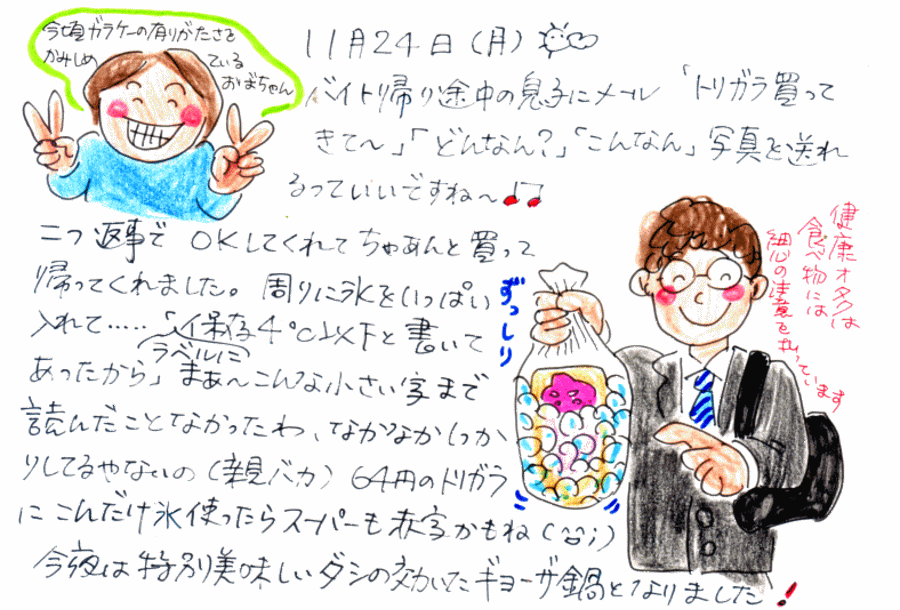 今頃ガラケーの有りがたさを
かみしめ
ている
おばちゃん
11月24日(月)
バイト帰り途中の息子にメール「トリガラ買って
きて〜」「どんなん?」「こんなん」写真を送れ
るっていいですね〜♪♫
二つ返事でOKしてくれてちゃあんと買って
帰ってくれました。周りに氷をいっぱい
入れて‥‥「保存4℃以下と書いて
ラベルに
あったから」まぁ〜こんな小さい字まで
読んだことなかったわ、なかなかしっか
りしてるやないの(親バカ)64円のトリガラ
にこんだけ氷使ったらスーパーも赤字かもね(^^;)
今夜は特別美味しいダシの効いたギョーザ鍋となりました!
ずっしり
健康オタクは
食べ物には
細心の注意を払っています